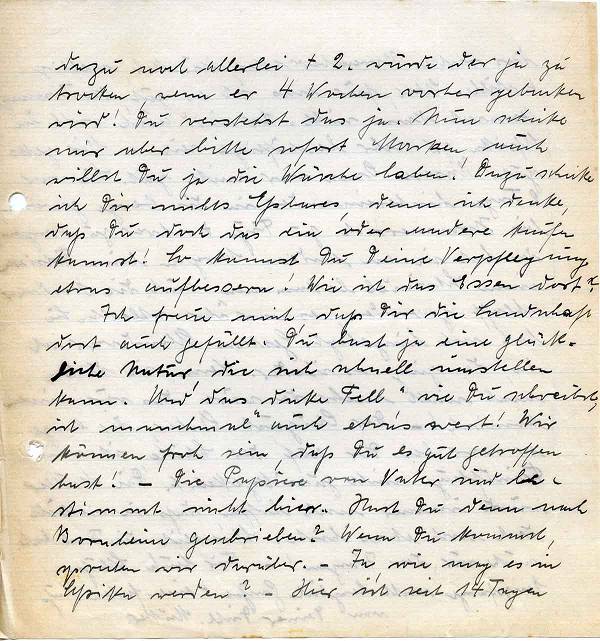 dazu noch allerlei + 2. würde der ja zu
trocken, wenn er 4 Wochen vorher gebacken
wird! Du verstehst das ja. Nun schicke
mir aber bitte sofort Marken auch
willst Du ja die Wäsche haben! Dazu schicke
ich Dir nichts Eßbares, denn ich denke,
daß Du doch das ein oder andere kaufen
kannst! So kannst Du Deine Verpflegung
etwas aufbessern! Wie ist das Essen dort?
Ich freue mich, daß Dir die Landschaft
dort auch gefällt. Du hast ja eine glück-
liche Natur, die sich schnell umstellen
kann. Und „das dicke Fell“ wie Du schreibst,
ist manchmal auch etwas wert! Wir
können froh sein, daß Du es gut getroffen
hast! – Die Papiere von Vater sind be-
stimmt nicht hier. Hast Du denn nach
Bornheim geschrieben? Wenn Du kommst,
sprechen wir darüber. – Ja wie mag es in
werden? – Hier ist seit 14 Tagen